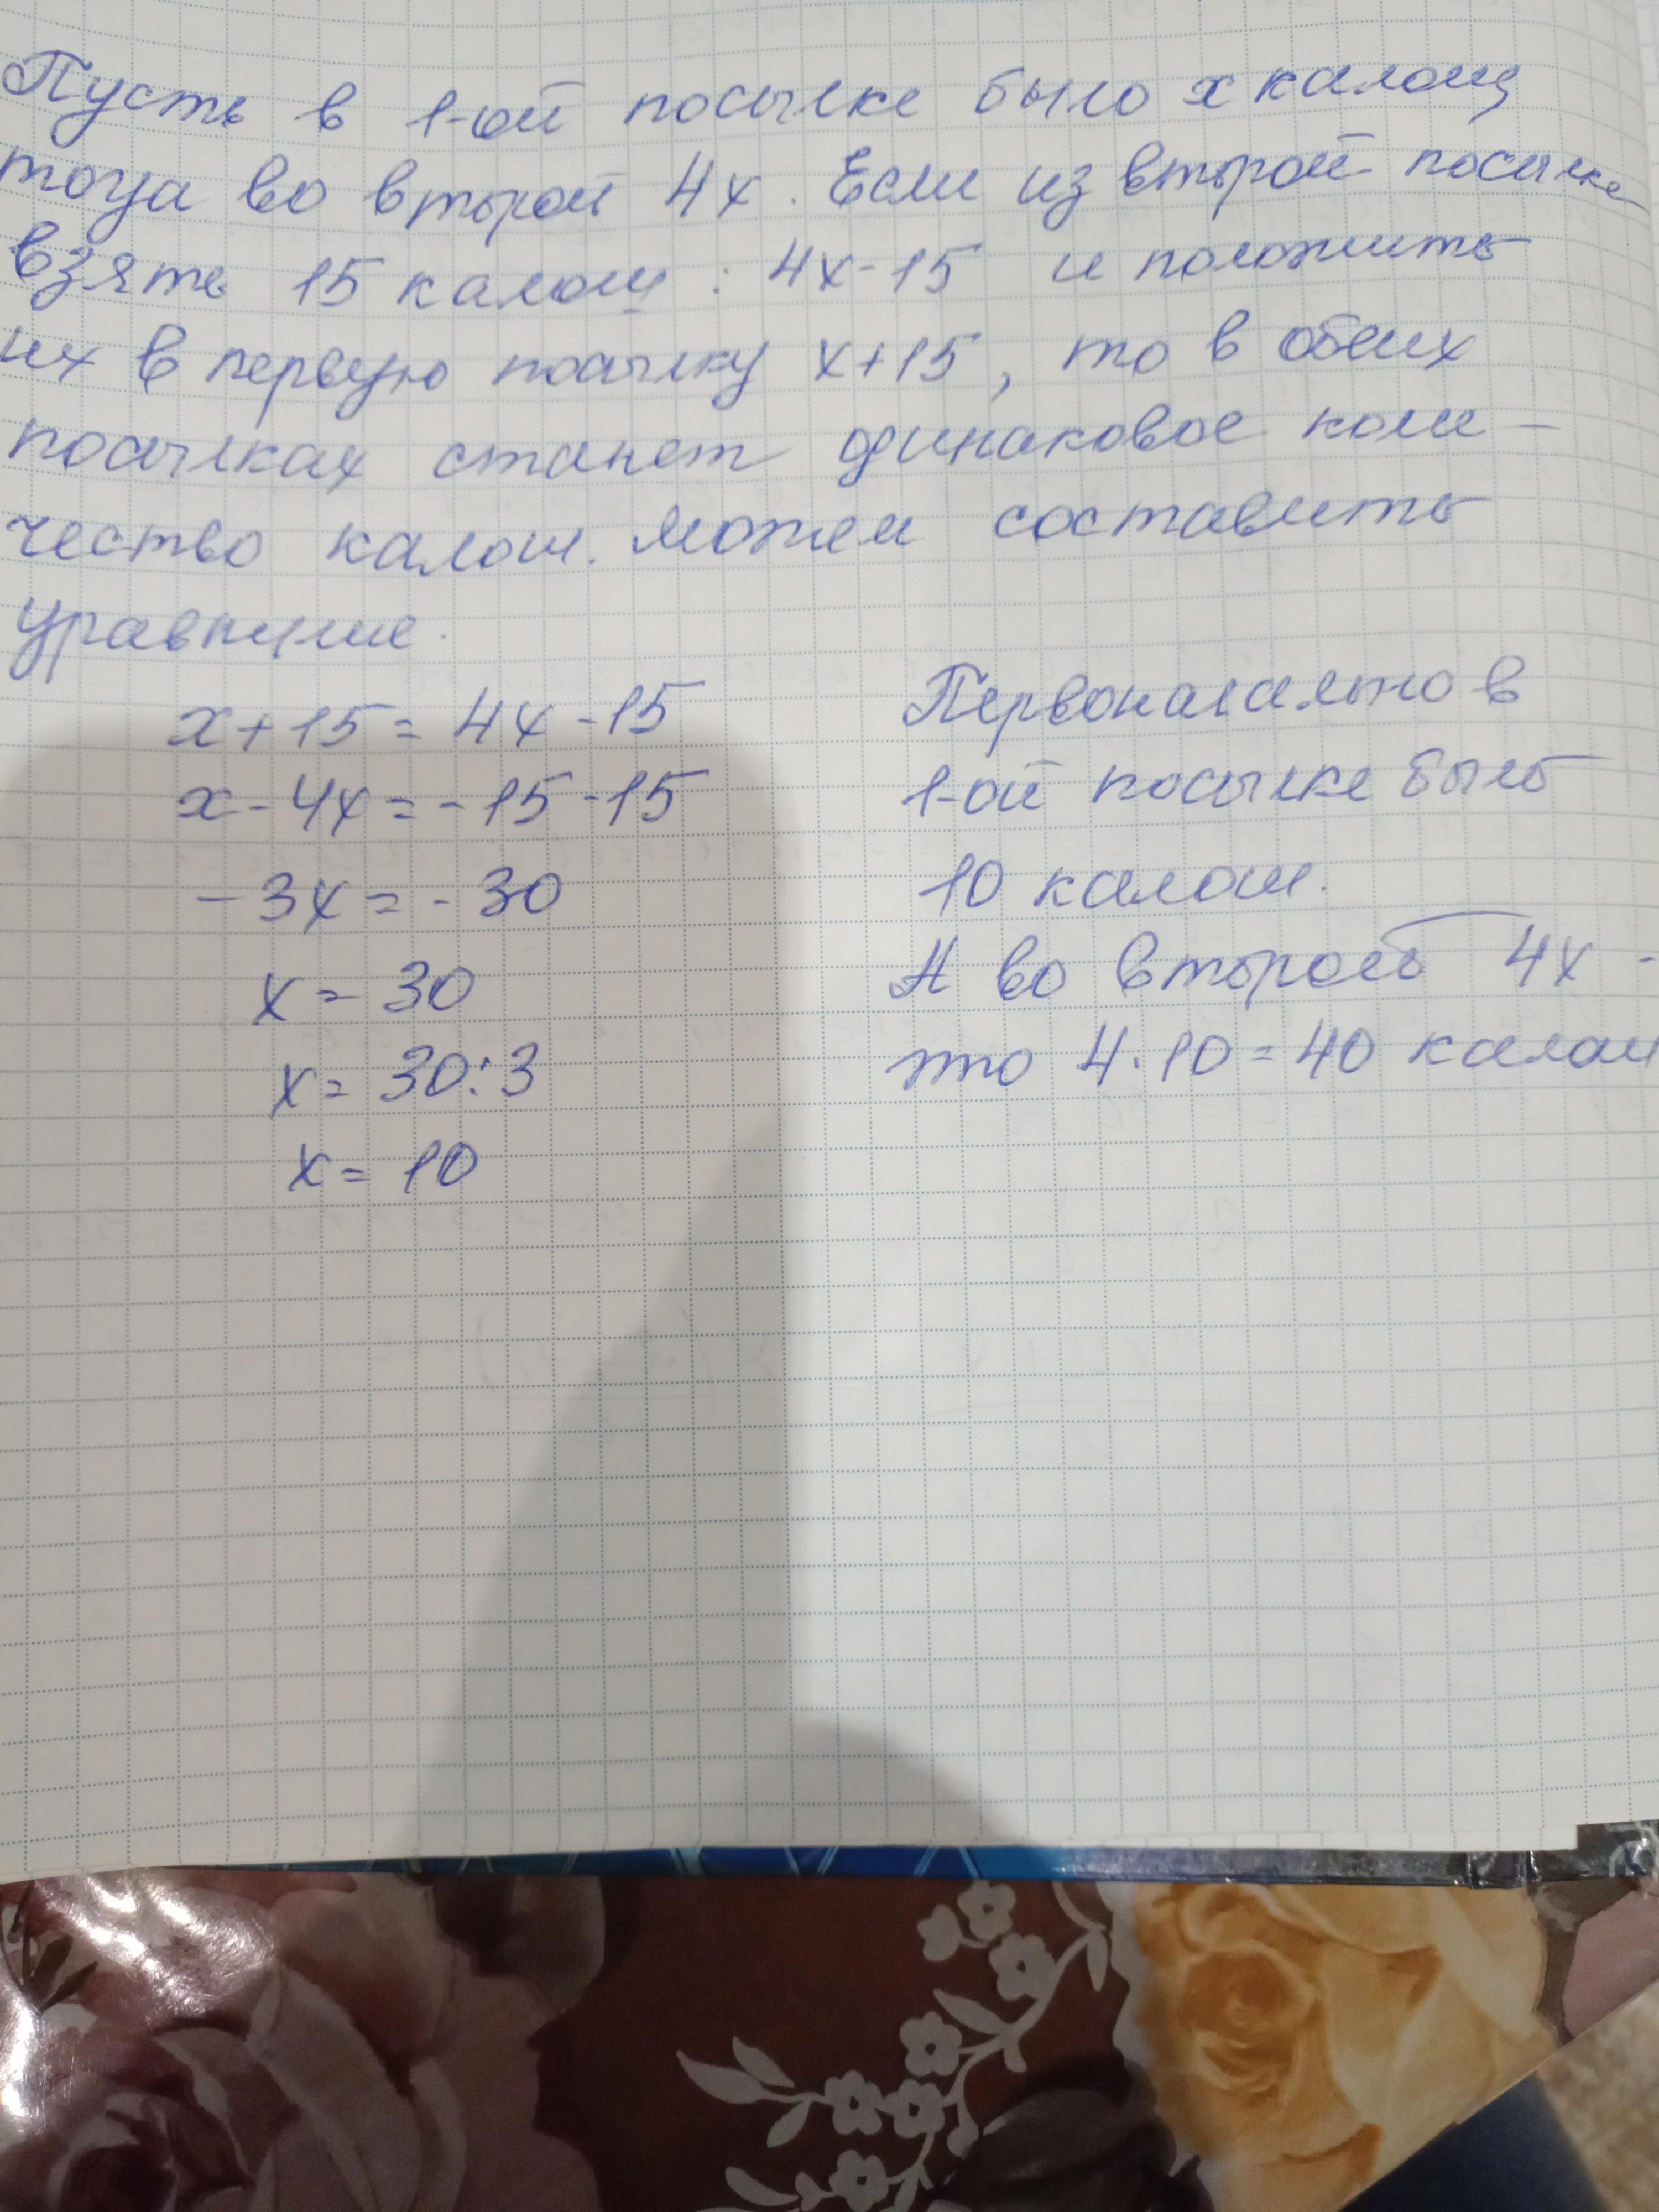 Пусть в 1-ой посылке было x калош,
тогда во второй 4x. Если из второй посылке
взять 15 калош : 4x-15 и положить
их в первую посылку x+15, то в обеих
посылках станет одинаковое коли-
чество калош. Можем составить
уравнение.
x+15=4x-15
x-4x=-15-15
-3x=-30
x=30
x=30:3
x=10
Первоначально в
1-ой посылке было
10 калош.
А во второй 4x -
это 4·10=40 калош